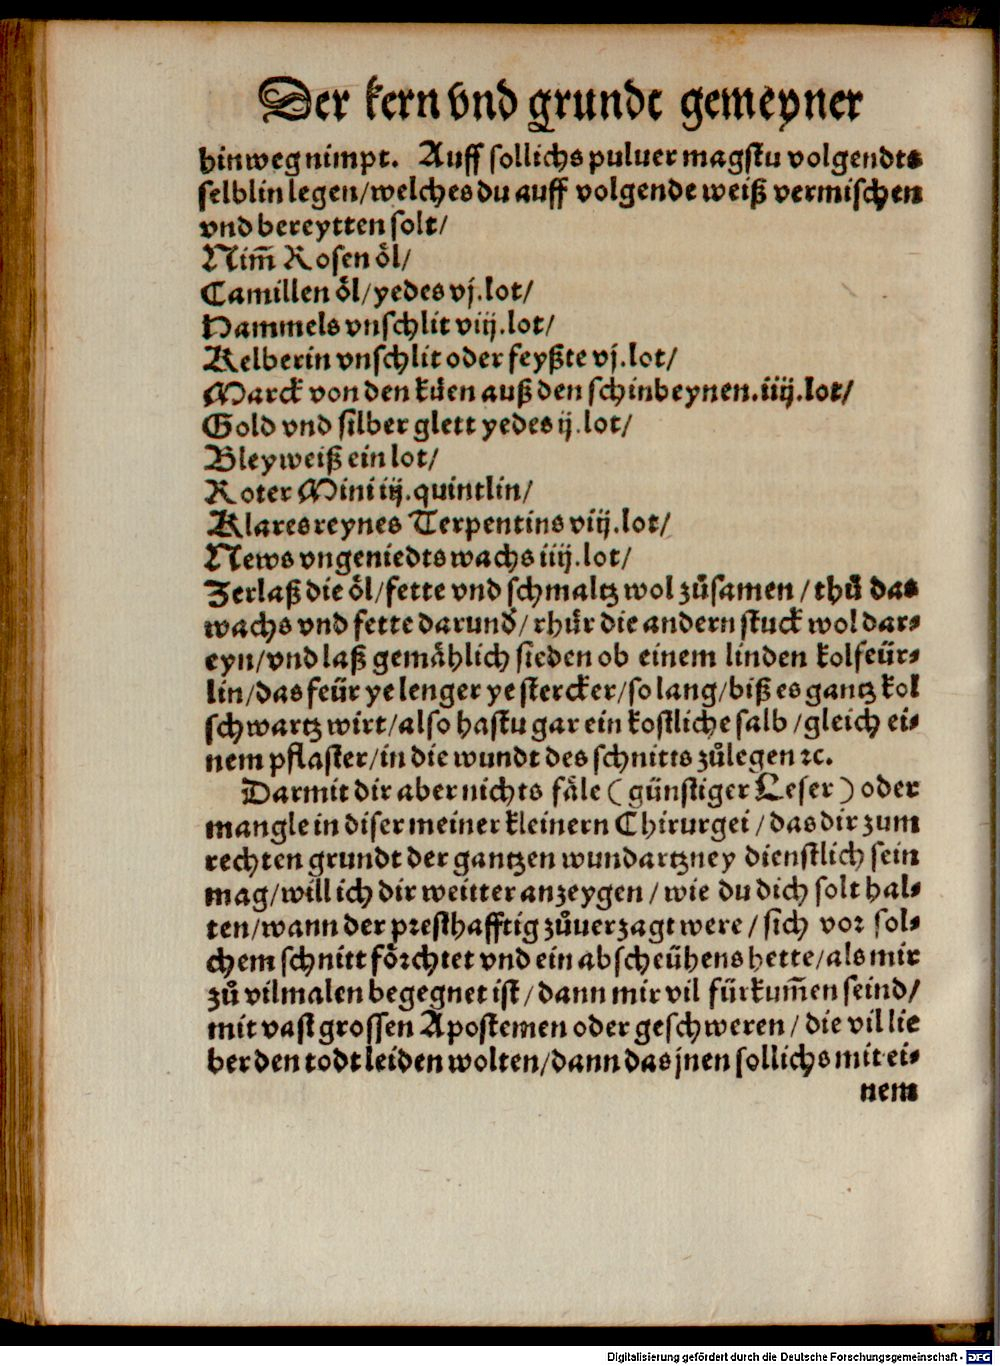 Der kern vnd grundt gemeyner
hinweg nimpt. Auff sollichs puluer magstu volgendts
selblin legen/welches du auff volgende weiß vermischen
vnd bereytten solt/
Nim̃ Rosen oͤl/
Camillen oͤl/yedes vj.lot/
Hammels vnschlit viij.lot/
Kelberin vnschlit oder feyßte vj.lot/
Marck von den kuͤen auß den schinbeynen.iiij.lot/
Gold vnd silber glett yedes ij.lot/
Bleyweiß ein lot/
Roter Mini iij.quintlin/
Klares reynes Terpentins viij.lot/
News vngeniedts wachs iiij.lot/
Zerlaß die oͤl/fette vnd schmaltz wol zuͦsamen/thuͦ das
wachs vnd fette darund̕/rhuͤr die andern stuck wol dar⸗
eyn/vnd laß gemaͤhlich sieden ob einem linden kolfeür⸗
lin/das feür ye lenger ye stercker/so lang/biß es gantz kol
schwartz wirt/also hastu gar ein kostliche salb/gleich ei⸗
nem pflaster/in die wundt des schnitts zuͦlegen ꝛc.
Darmit dir aber nichts faͤle (günstiger Leser) oder
mangle in diser meiner kleinern Chirurgei/das dir zum
rechten grundt der gantzen wundartzney dienstlich sein
mag/will ich dir weitter anzeygen/wie du dich solt hal⸗
ten/wann der presthafftig zuͦuerzagt were/sich vor sol⸗
chem schnitt foͤrchtet vnd ein abscheühens hette/als mir
zuͦ vilmalen begegnet ist/dann mir vil fürkum̃en seind/
mit vast grossen Apostemen oder geschweren/die vil lie
ber den todt leiden wolten/dann das jnen sollichs mit ei⸗
nem
Digitalisierung gefördert durch die Deutsche Forschungsgemeinschaft - DFG